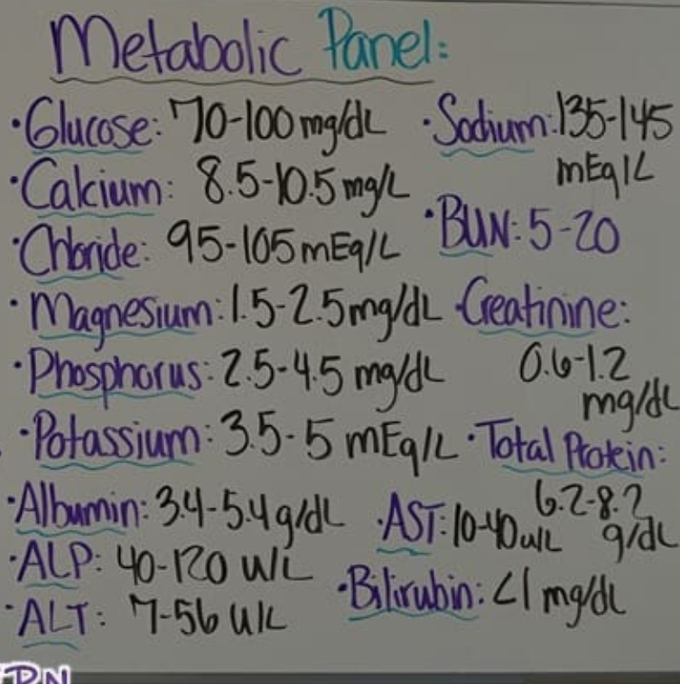 Metabolic Panel:
·Glucose: 70-100 mg/dL
·Calcium: 8.5-10.5 mg/L
·Chloride: 95-105 mEq/L
·Magnesium: 1.5-2.5 mg/dL
·Phosphorus: 2.5-4.5 mg/dL
·Potassium: 3.5-5 mEq/L
·Albumin: 3.4-5.4 g/dL
·ALP: 40-120 U/L
·ALT: 7-56 U/L
·Sodium: 135-145
mEq/L
·BUN: 5-20
·Creatinine:
0.6-1.2
mg/dL
·Total Protein:
6.2-8.2
g/dL
·AST: 10-40 u/L
·Bilirubin: <1 mg/dL